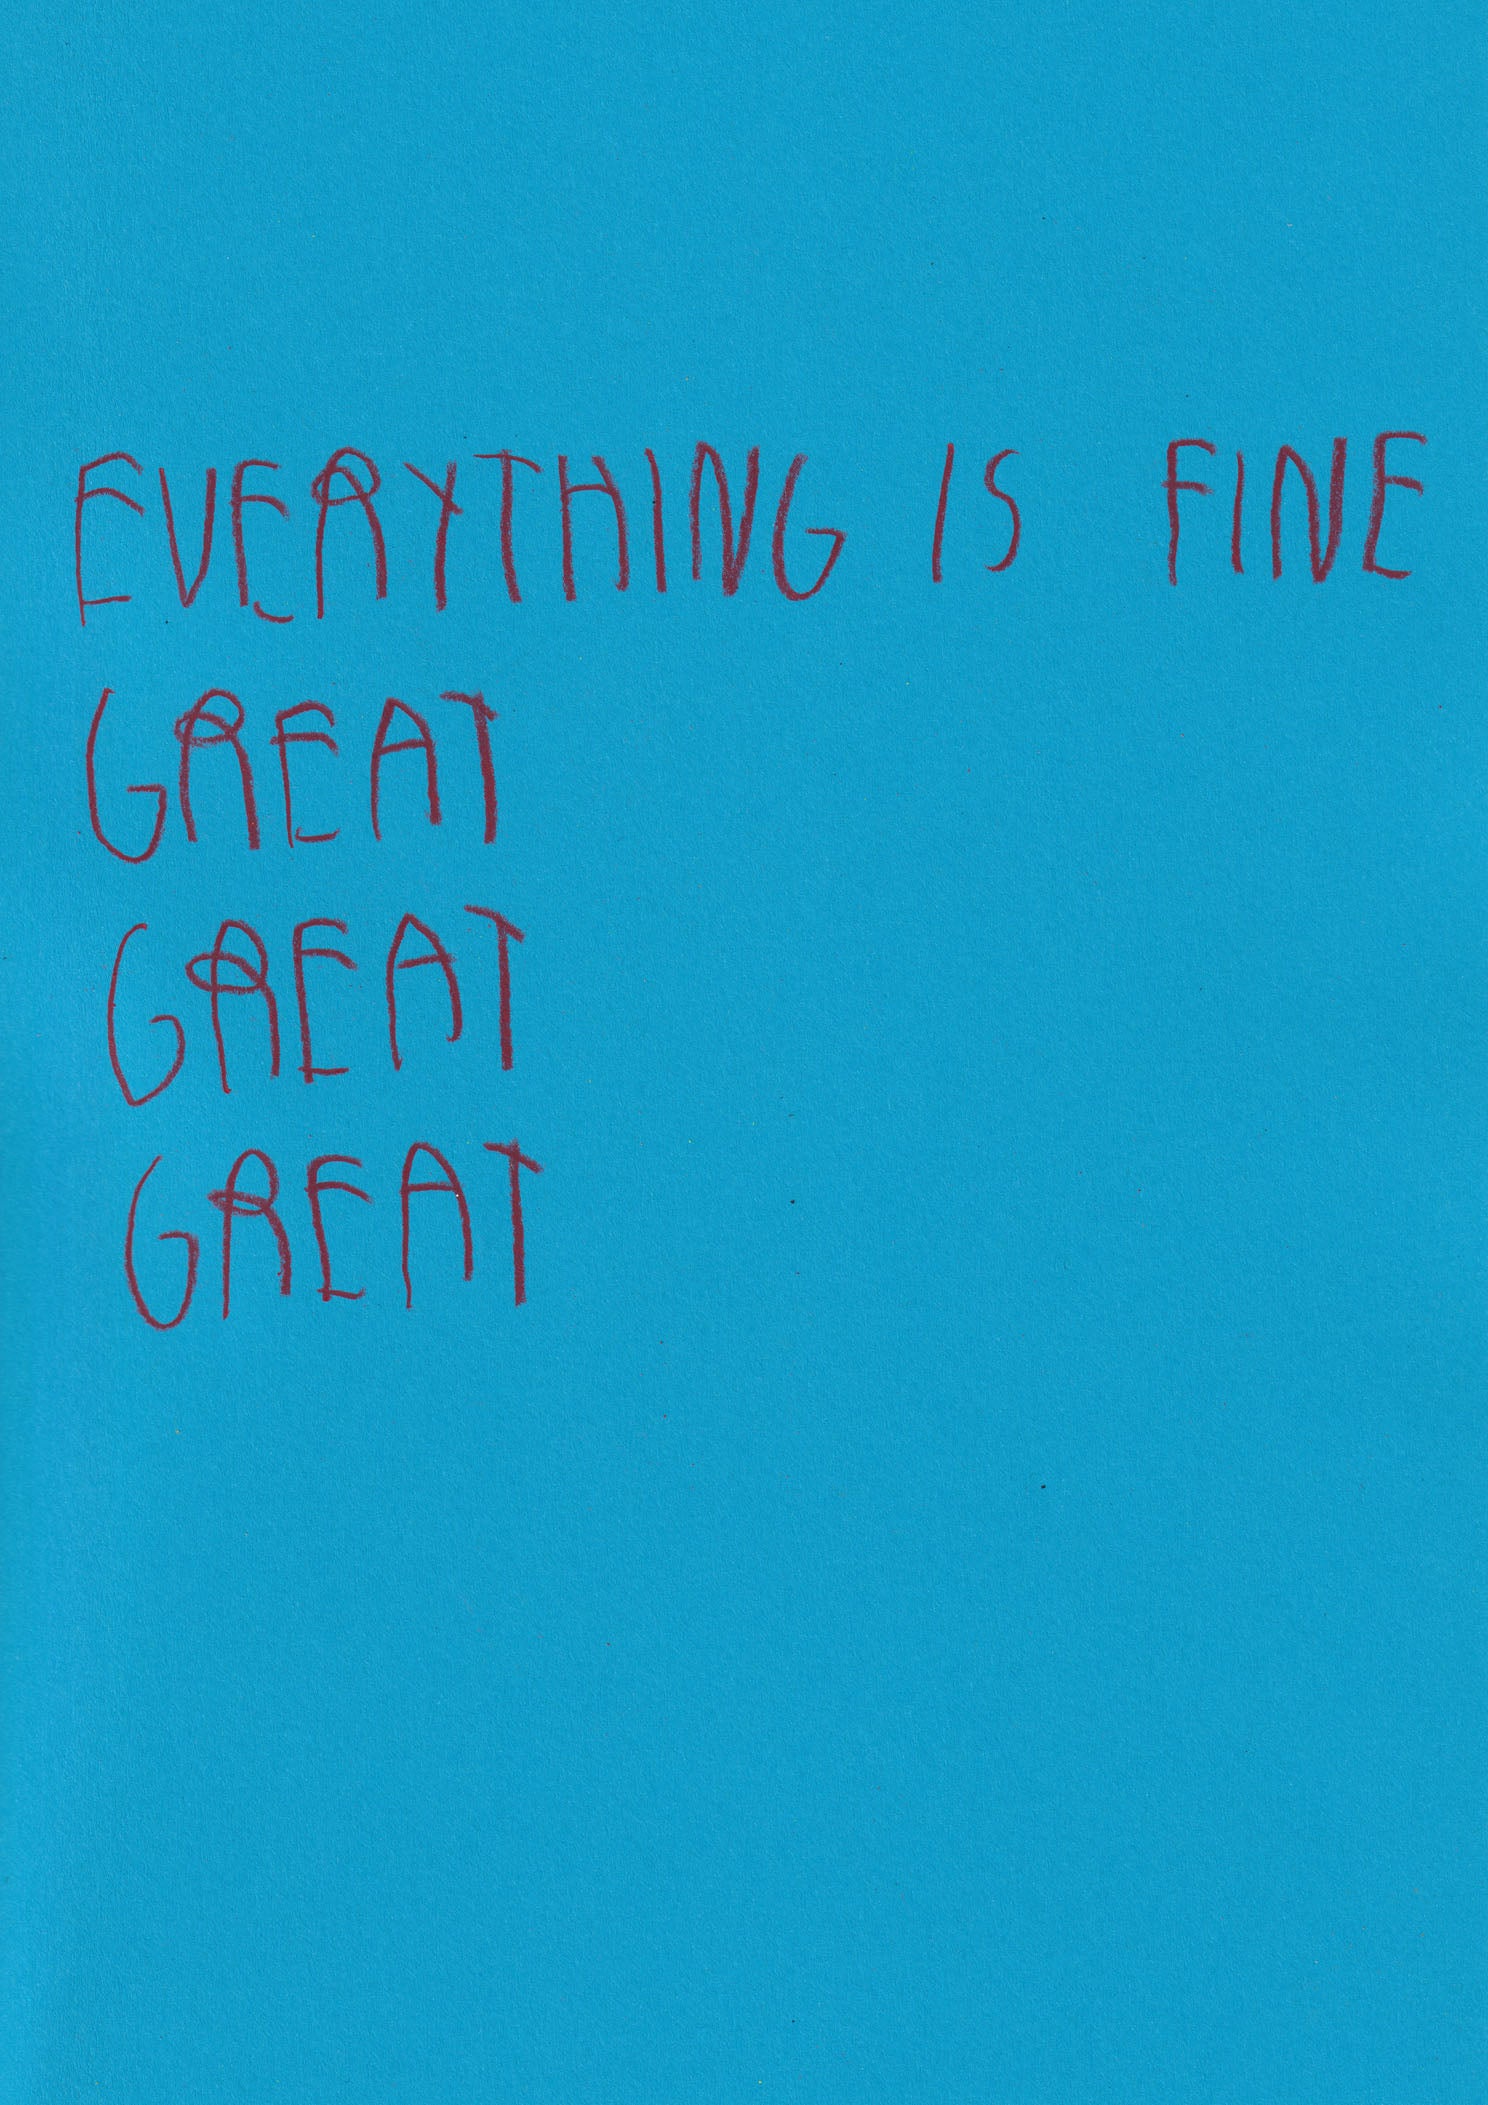 EVERYTHING IS FINE
GREAT
GREAT
GREAT